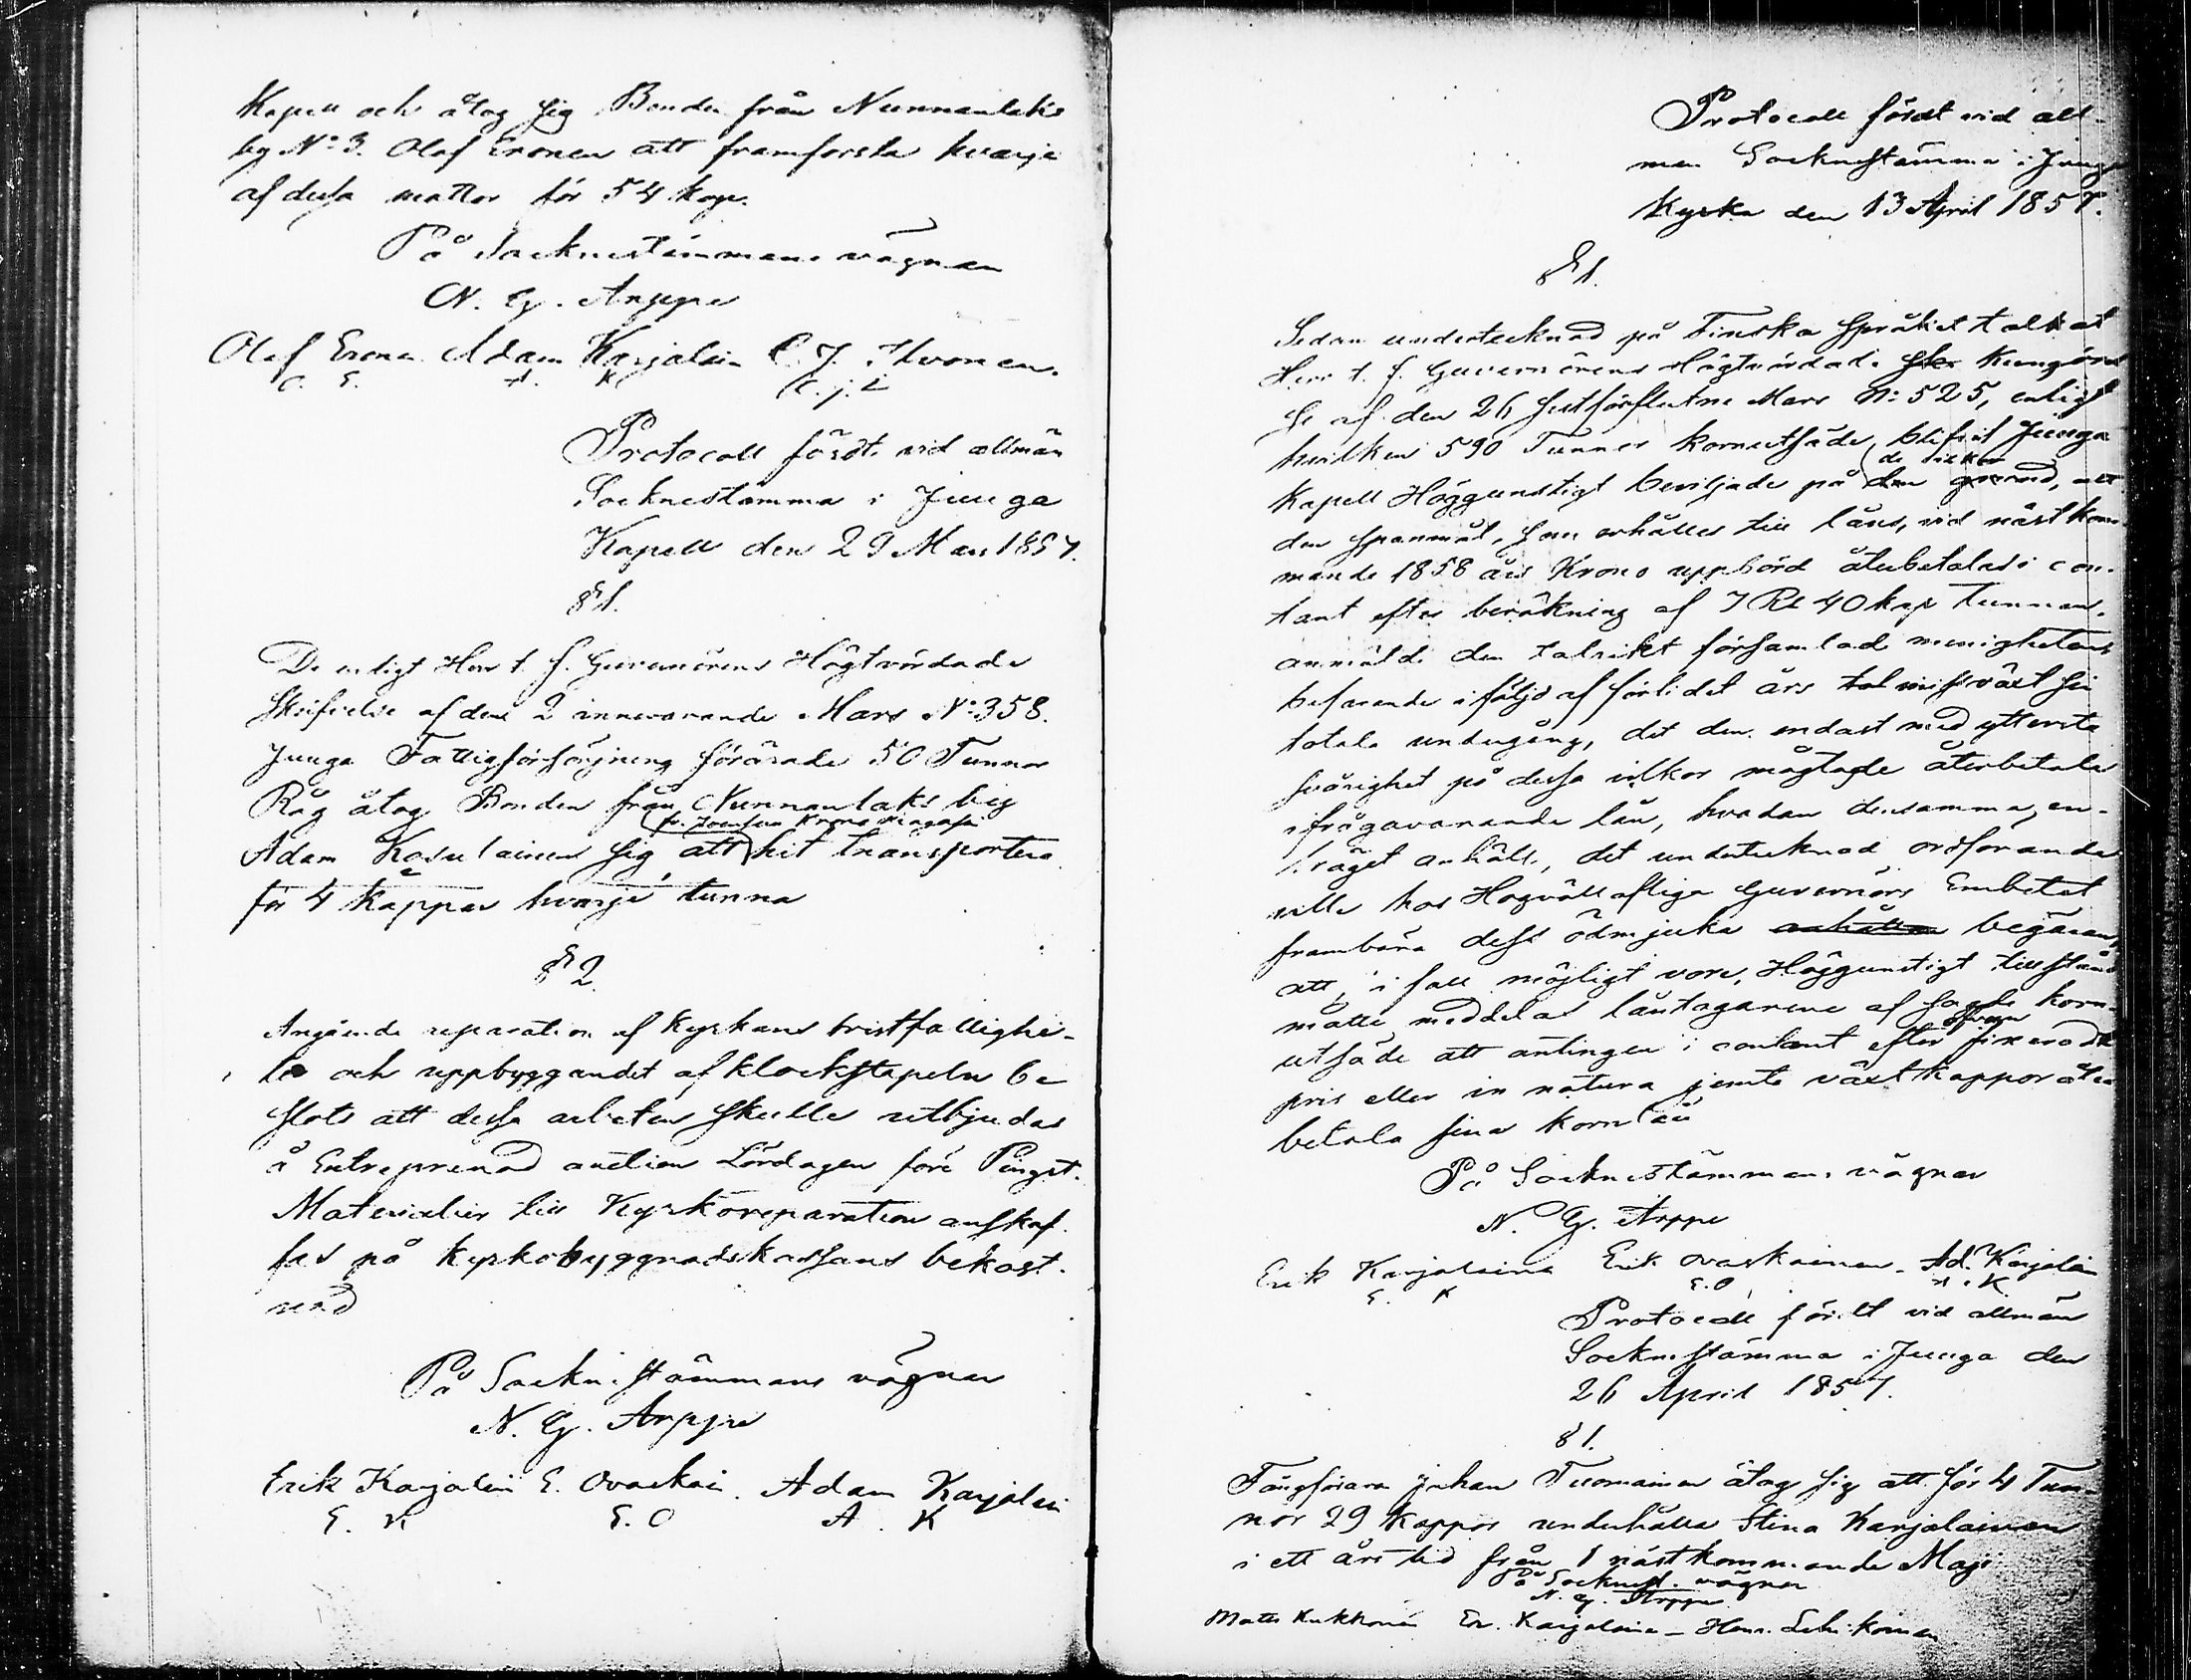 Kapell och åtog sig Bonden från Nunnanlaks
by No 3. Olof Eronen att framforsla hvarje
af dessa mattor för 54 kop.
På Socknestämmans vägnar
N. G. Arppe
Olof Eronen Adam Karjalain C. J. Ihvonen.
O. E. A. K. C. J. I.
Protocoll fördt vid allmän
Socknestämma i Juuga
Kapell den 29 Mars 1857.
§ 1.
De enligt Herr t. f. Guvernörens Högtvördade
Skrifvelse af den 2 innevarande Mars No 358.
Juuga Fattigförsörjning förärade 50 Tunnor
Råg åtog Bonden från Nunnanlaks by
fr. Joensuu Krono Magasin
Adam Kosulainen sig att hit transportera
för 4 kappar hvarje tunna
§ 2.
Angående reparation af kyrkans bristfällighe-
ter och uppbyggandet af klockstapeln be
slöts att dessa arbeten skulle utbjudas
å Entreprenad auction Lördagen före Pingst.
Materialier till Kyrkoreparation anskaf-
fas på kyrkobyggnadskassans bekost-
nad
På Socknestämmans vägnar
N. G. Arppe
Erik Karjalain E. Ovaskai. Adam Karjalain
E. K E. O A. K
Protocoll fördt vid all-
män Socknestämma i Juuga
Kyrka den 13 April 1857.
§ 1.
Sedan undertecknad på Finska språket tolkat
Herr t. f. Guvernörens Högtvördade Kungörel
se af den 26 sistförflutne Mars No 525, enligt
hvilken 590 Tunnor kornutsäde, blifvit Juuga
de vilkor
Kapell Höggunstigt beviljade på den grund, att
den spannmål, som erhålles till låns, vid nästkom-
mande 1858 års Krono uppbörd återbetalas i con-
tant efter beräkning af 7 Rb 40 kop tunnan,
anmälde den talrikt församlade menigheten
befarande i följd af förlidet års missväxt sin
totala undergång, det den endast med yttersta
svårighet på dessa vilkor mägtade återbetala
ifrågavarande lån, hvadan densamma, en-
träget anhöll, det undertecknad ordförande
ville hos Högvällofliga Guvernörs Embetet
frambära dess ödmjuka anhållan begäran,
att, i fall möjligt vore, Höggunstigt tillstånd
måtte meddelas låntagarene af sagde korn-
utsäde att antingen i contant efter ofvan fixerade
pris eller in natura jemte växtkappor åter
betala sina kornlån
På Socknestämmans vägnar
N. G. Arppe
Erik Karjalaine Erik Ovaskainen. Ad. Karjalain
E. K E. O A. K
Protocoll fördt vid allmän
Socknestämma i Juuga den
26 April 1857.
§ 1.
Fångförara Johan Tuomainen åtog sig att för 4 Tun-
nor 29 kappor underhålla Stina Karjalainen
i ett års tid från 1 nästkommande Maji
På Socknest. vägnar
N. G. Arppe
Matts Kukkonen Er. Karjalaine - Henr.